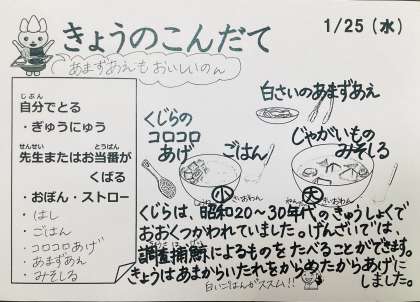 きょうのこんだて
1/25（水）
あまずあえもおいしいのん
自分でとる
じぶん
・ぎゅうにゅう
先生またはお当番が
せんせい
とうばん
くばる
・おぼん・ストロー
・はし
・ごはん
・コロコロあげ
・あまずあえ
・みそしる
白さいのあまずあえ
くじらの
コロコロ
あげ
ごはん
じゃがいもの
みそしる
小
大
くじらは、昭和20～30年代のきゅうしょくで
おおくつかわれていました。げんざいでは、
調査捕鯨によるものをたべることができます。
きょうはあまからいたれをからめたからあげに
しました。
白いごはんがススム!!